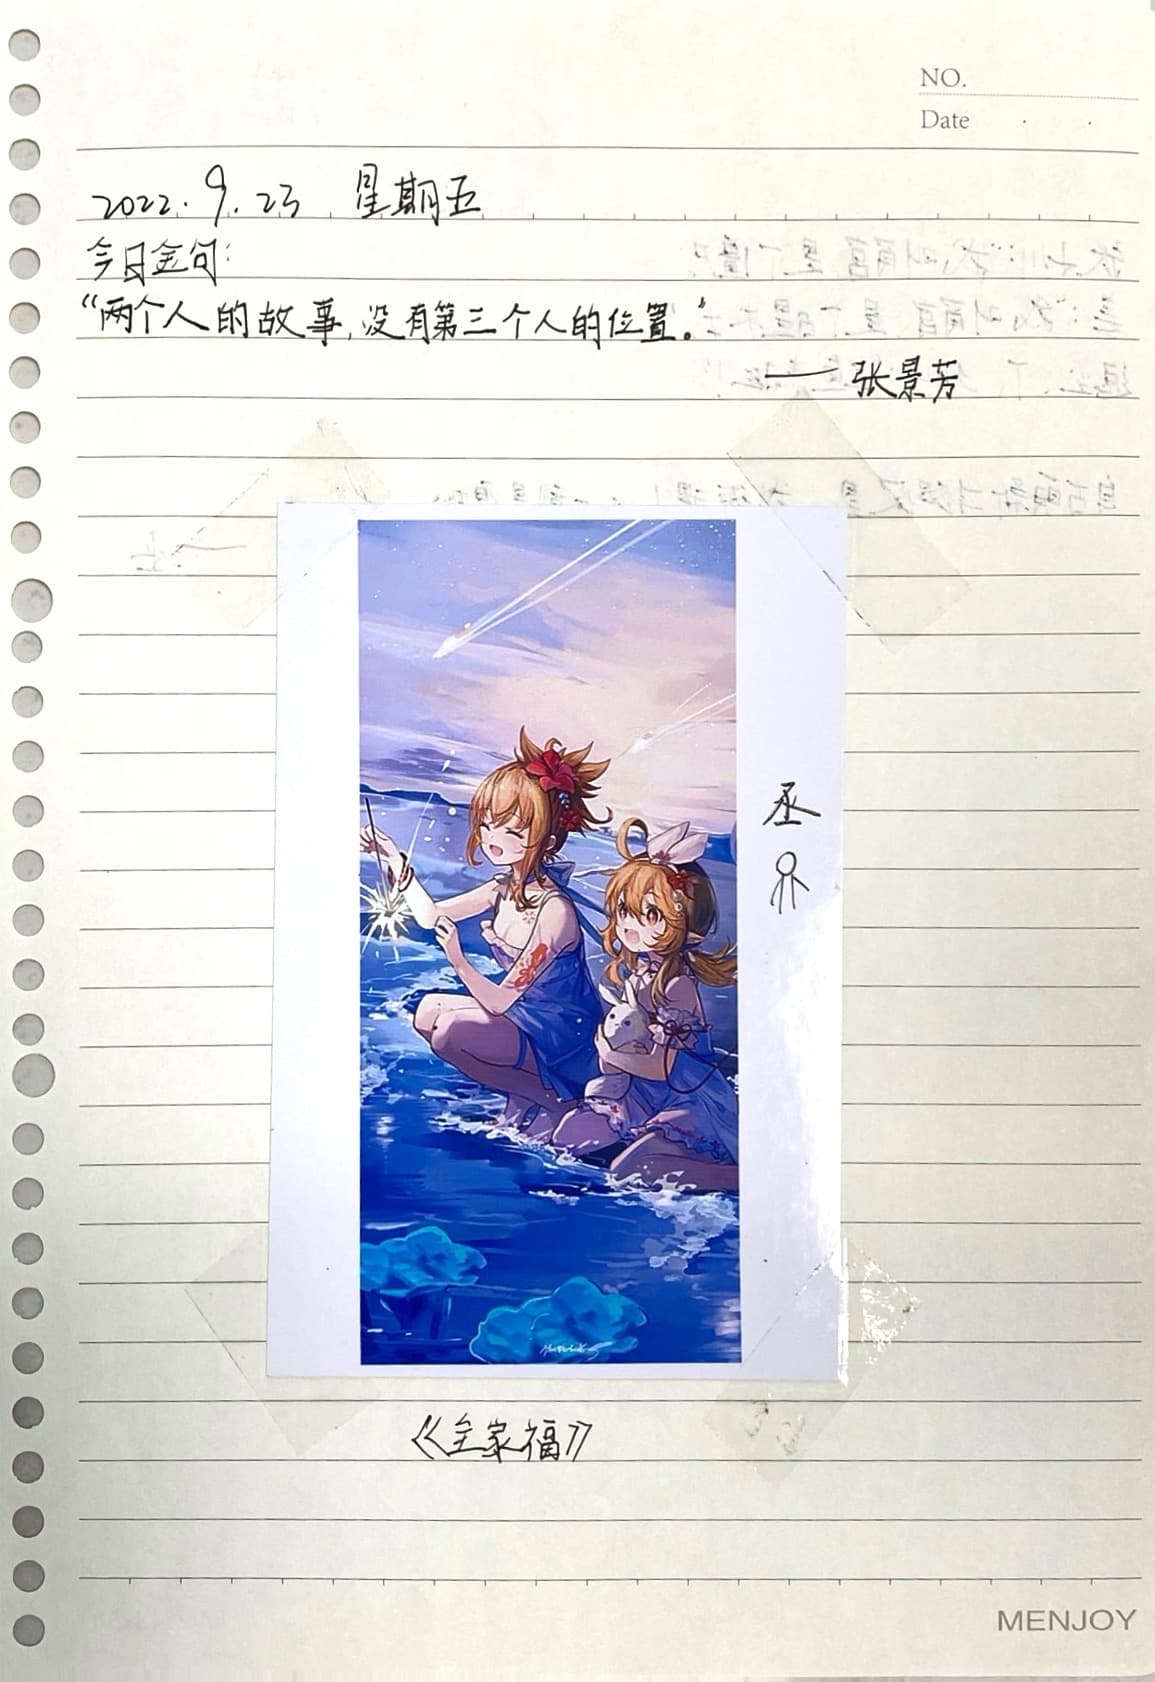 NO.
Date
2022.9.23 星期五
今日金句:
“两个人的故事,没有第三个人的位置。”
——张景芳
丞
《全家福》
MENJOY